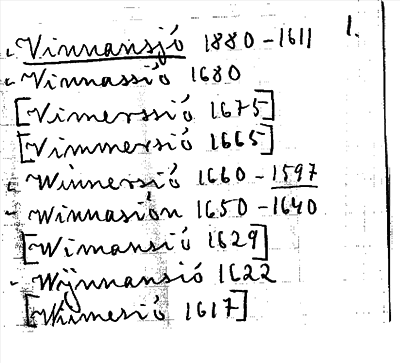 Vinnansjö 1880-1611 1.
Vinnassiö 1680
[Vimerssiö 1675]
[Vimmersiö 1665]
Winnersiö 1660-1597
Winnasiön 1650-1640
[Wimansiö 1629]
Wÿnnansiö 1622
[Wimesiö 1617]